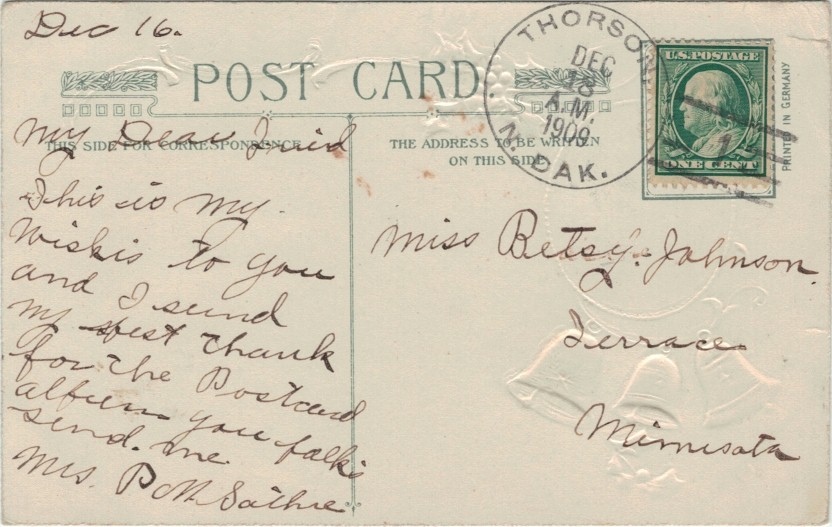 Dec 16.
POST CARD
THIS SIDE FOR CORRESPONDENCE
THE ADDRESS TO BE WRITTEN
ON THIS SIDE
THORSON,
DEC
18
A.M.
1909
N. DAK.
U.S. POSTAGE
ONE CENT
1
PRINTED IN GERMANY
My Dear Frind
This is my
wishis to you
and I send
my best thank
for the Postcard
album you folks
send. me
Mrs. P M Sathre
Miss Betsy. Johnson.
Terrace
Minnisota